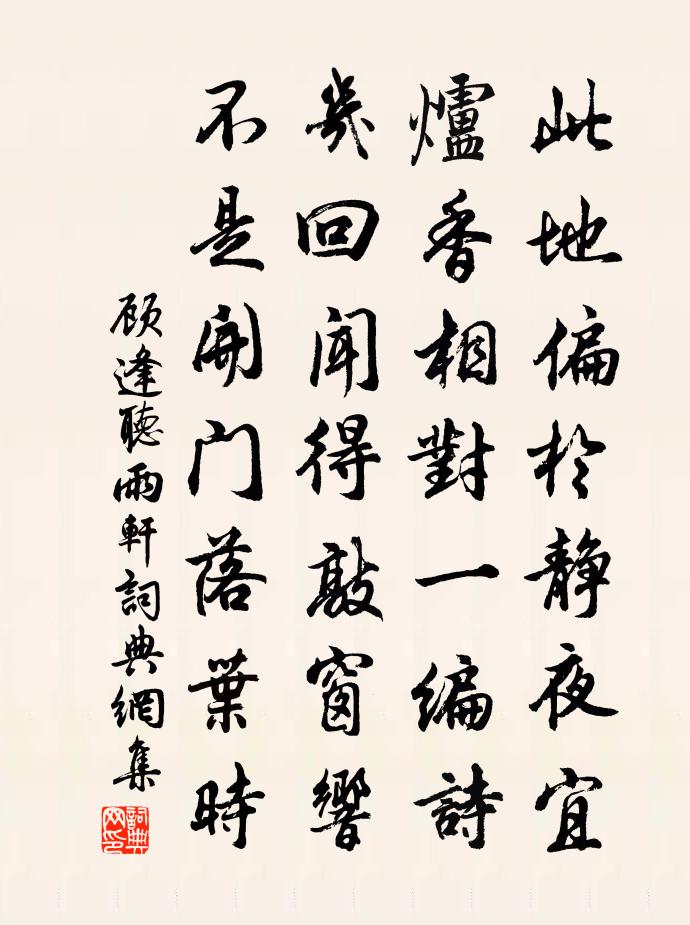 此地偏於静夜宜
爐香相對一編詩
幾回聞得敲窗響
不是開门落葉時
顾逢聽雨軒詞典網集
詞典網印